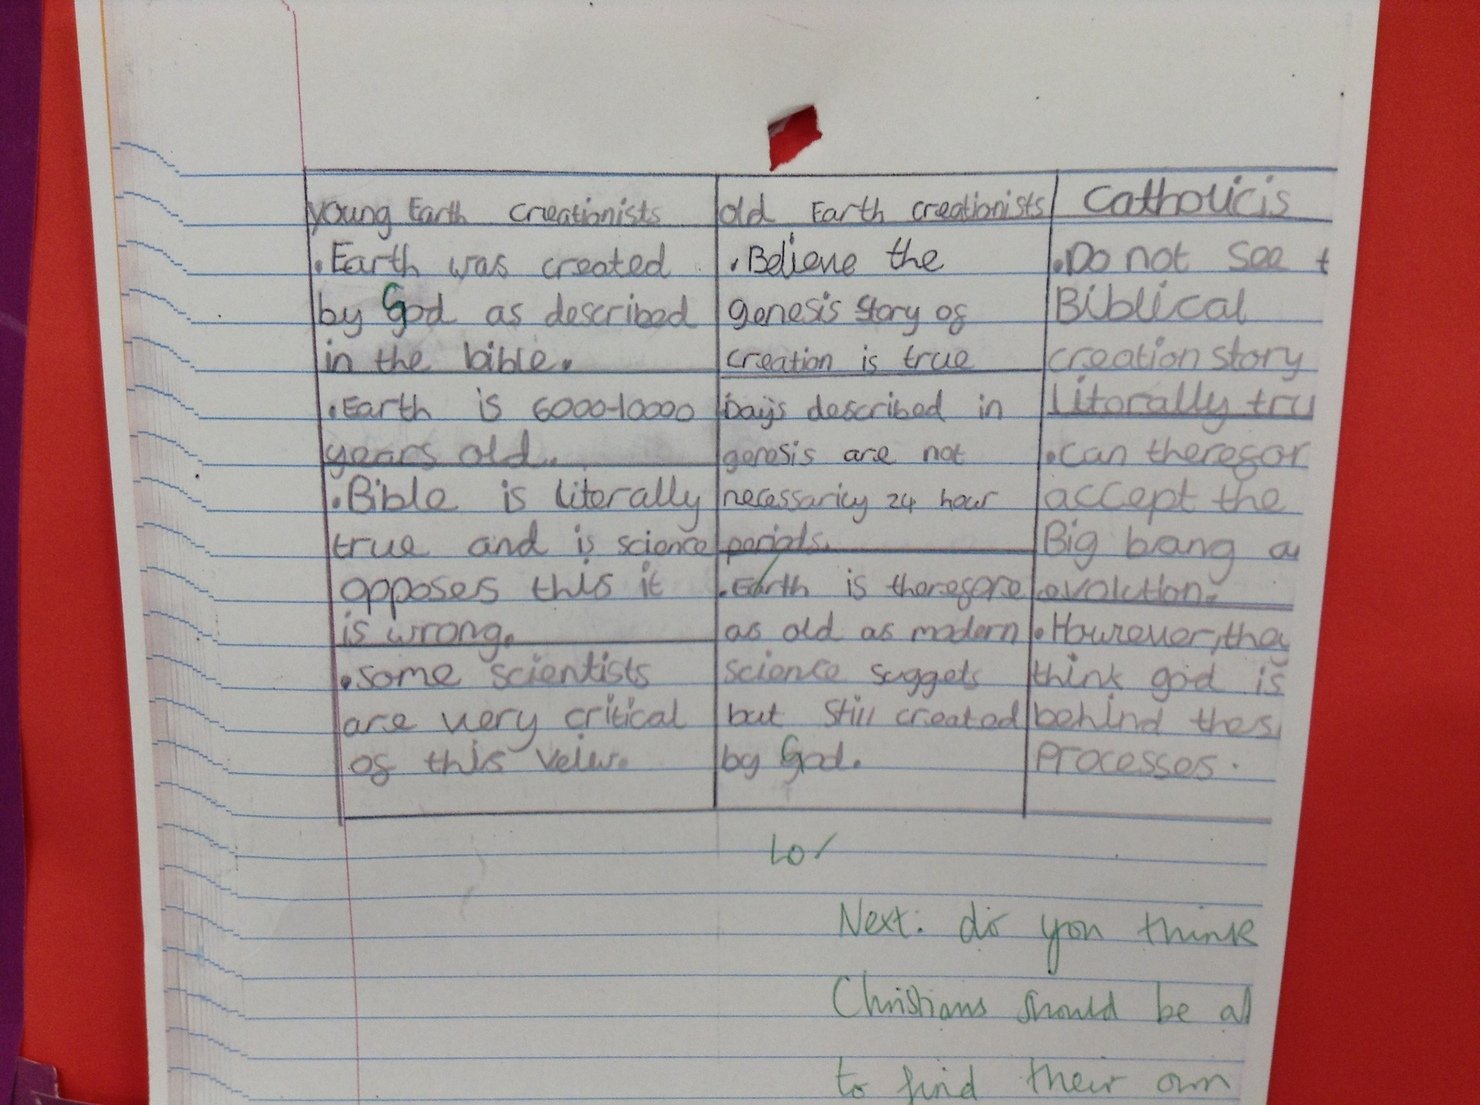 young Earth creationists
.Earth was created
by God as described
in the bible.
.Earth is 6000-10000
years old.
.Bible is literally
true and is science
opposes this it
is wrong.
.some scientists
are very critical
of this veiw.
old Earth creationists
.Believe the
genesis story of
creation is true
Days described in
genesis are not
necessarily 24 hour
periods.
.Earth is therefore
as old as modern
science suggets
but still created
by God.
Catholicis
.Do not see t
Biblical
creation story
literally tru
.can therefor
accept the
Big bang a
evolution.
.However, they
think god is
behind thes
processes.
LO✓
Next: do you think
Christians should be al
to find their own